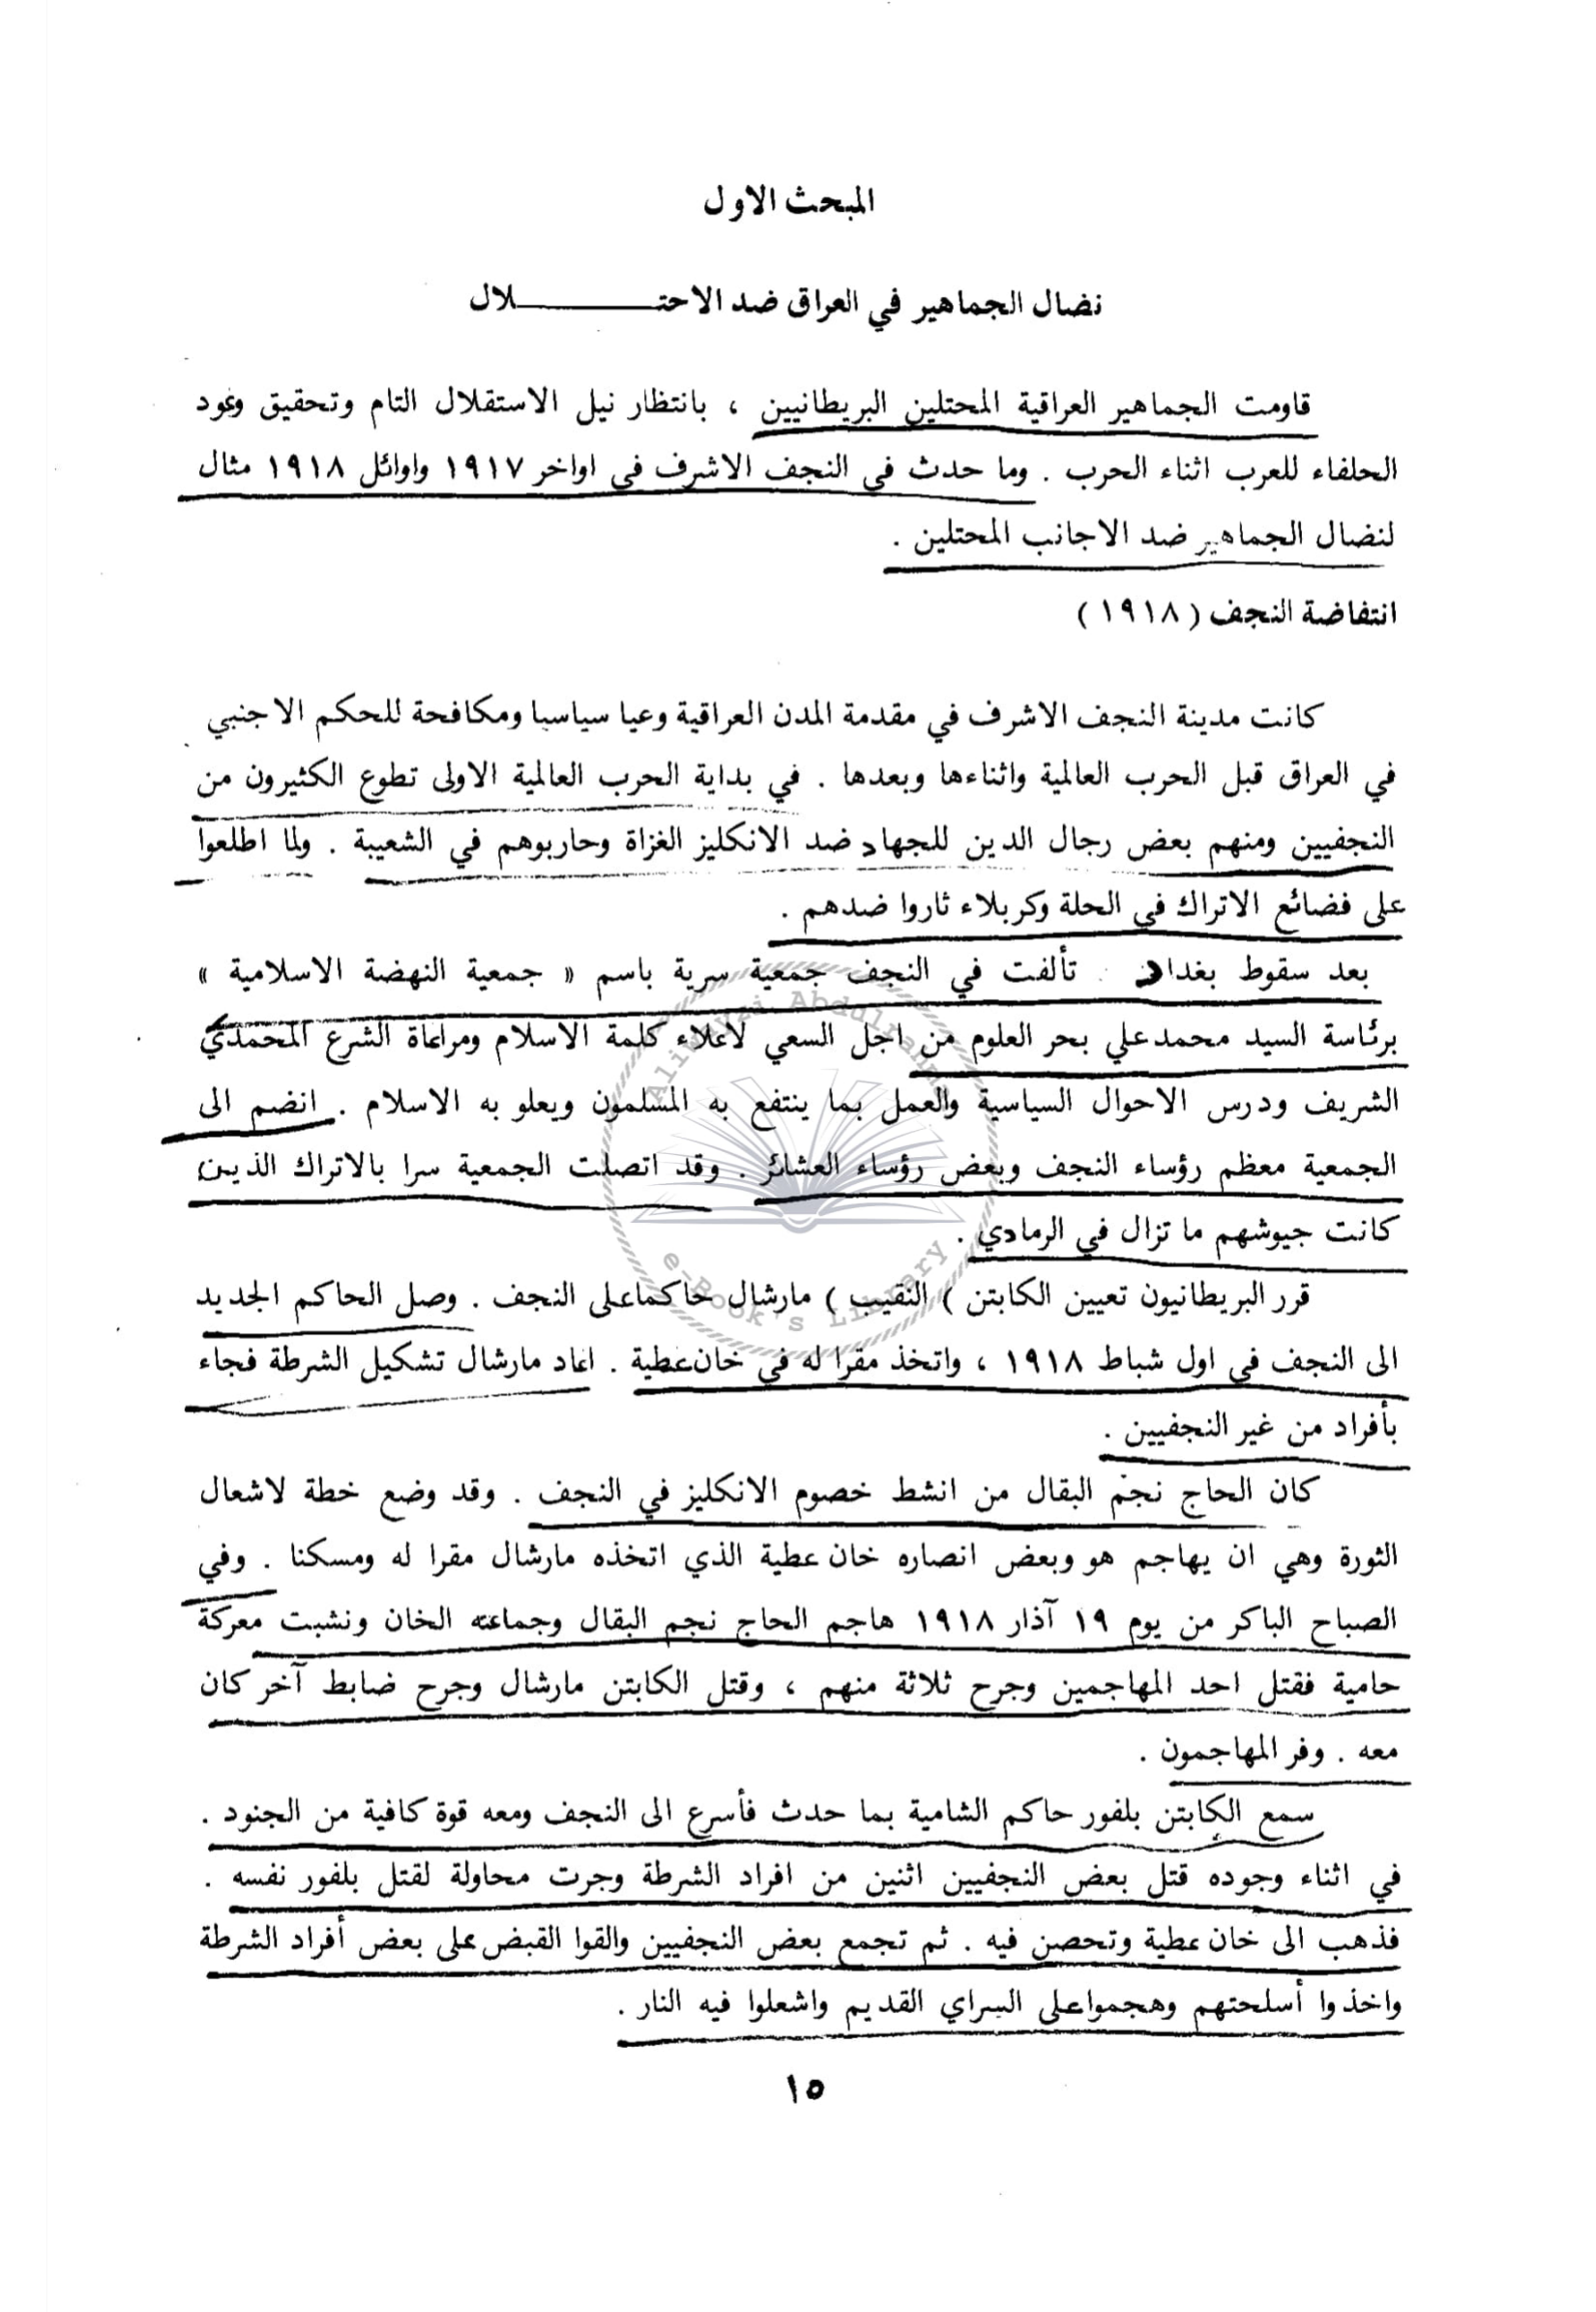 المبحث الاول
نضال الجماهير في العراق ضد الاحتـــــــــلال
قاومت الجماهير العراقية المحتلين البريطانيين ، بانتظار نيل الاستقلال التام وتحقيق وعود
الحلفاء للعرب اثناء الحرب . وما حدث في النجف الاشرف في اواخر ١٩١٧ واوائل ١٩١٨ مثال
لنضال الجماهير ضد الاجانب المحتلين .
انتفاضة النجف ( ١٩١٨ )
كانت مدينة النجف الاشرف في مقدمة المدن العراقية وعيا سياسيا ومكافحة للحكم الاجنبي
في العراق قبل الحرب العالمية واثناءها وبعدها . في بداية الحرب العالمية الاولى تطوع الكثيرون من
النجفيين ومنهم بعض رجال الدين للجهاد ضد الانكليز الغزاة وحاربوهم في الشعيبة . ولما اطلعوا
على فضائع الاتراك في الحلة وكربلاء ثاروا ضدهم .
بعد سقوط بغداد . تألفت في النجف جمعية سرية باسم « جمعية النهضة الاسلامية »
برئاسة السيد محمد علي بحر العلوم من اجل السعي لاعلاء كلمة الاسلام ومراعاة الشرع المحمدي
الشريف ودرس الاحوال السياسية والعمل بما ينتفع به المسلمون ويعلو به الاسلام . انضم الى
الجمعية معظم رؤساء النجف وبعض رؤساء العشائر . وقد اتصلت الجمعية سرا بالاتراك الذين
كانت جيوشهم ما تزال في الرمادي .
قرر البريطانيون تعيين الكابتن ) النقيب ) مارشال حاكما على النجف . وصل الحاكم الجديد
الى النجف في اول شباط ١٩١٨ ، واتخذ مقرا له في خان عطية . اعاد مارشال تشكيل الشرطة فجاء
بأفراد من غير النجفيين .
كان الحاج نجم البقال من انشط خصوم الانكليز في النجف . وقد وضع خطة لاشعال
الثورة وهي ان يهاجم هو وبعض انصاره خان عطية الذي اتخذه مارشال مقرا له ومسكنا . وفي
الصباح الباكر من يوم ١٩ آذار ١٩١٨ هاجم الحاج نجم البقال وجماعته الخان ونشبت معركة
حامية فقتل احد المهاجمين وجرح ثلاثة منهم ، وقتل الكابتن مارشال وجرح ضابط آخر كان
معه . وفر المهاجمون .
سمع الكابتن بلفور حاكم الشامية بما حدث فأسرع الى النجف ومعه قوة كافية من الجنود .
في اثناء وجوده قتل بعض النجفيين اثنين من افراد الشرطة وجرت محاولة لقتل بلفور نفسه .
فذهب الى خان عطية وتحصن فيه . ثم تجمع بعض النجفيين والقوا القبض على بعض أفراد الشرطة
واخذوا أسلحتهم وهجموا على السراي القديم واشعلوا فيه النار .
١٥
Ali Fayzi Abdulrahman
e-Book's Library